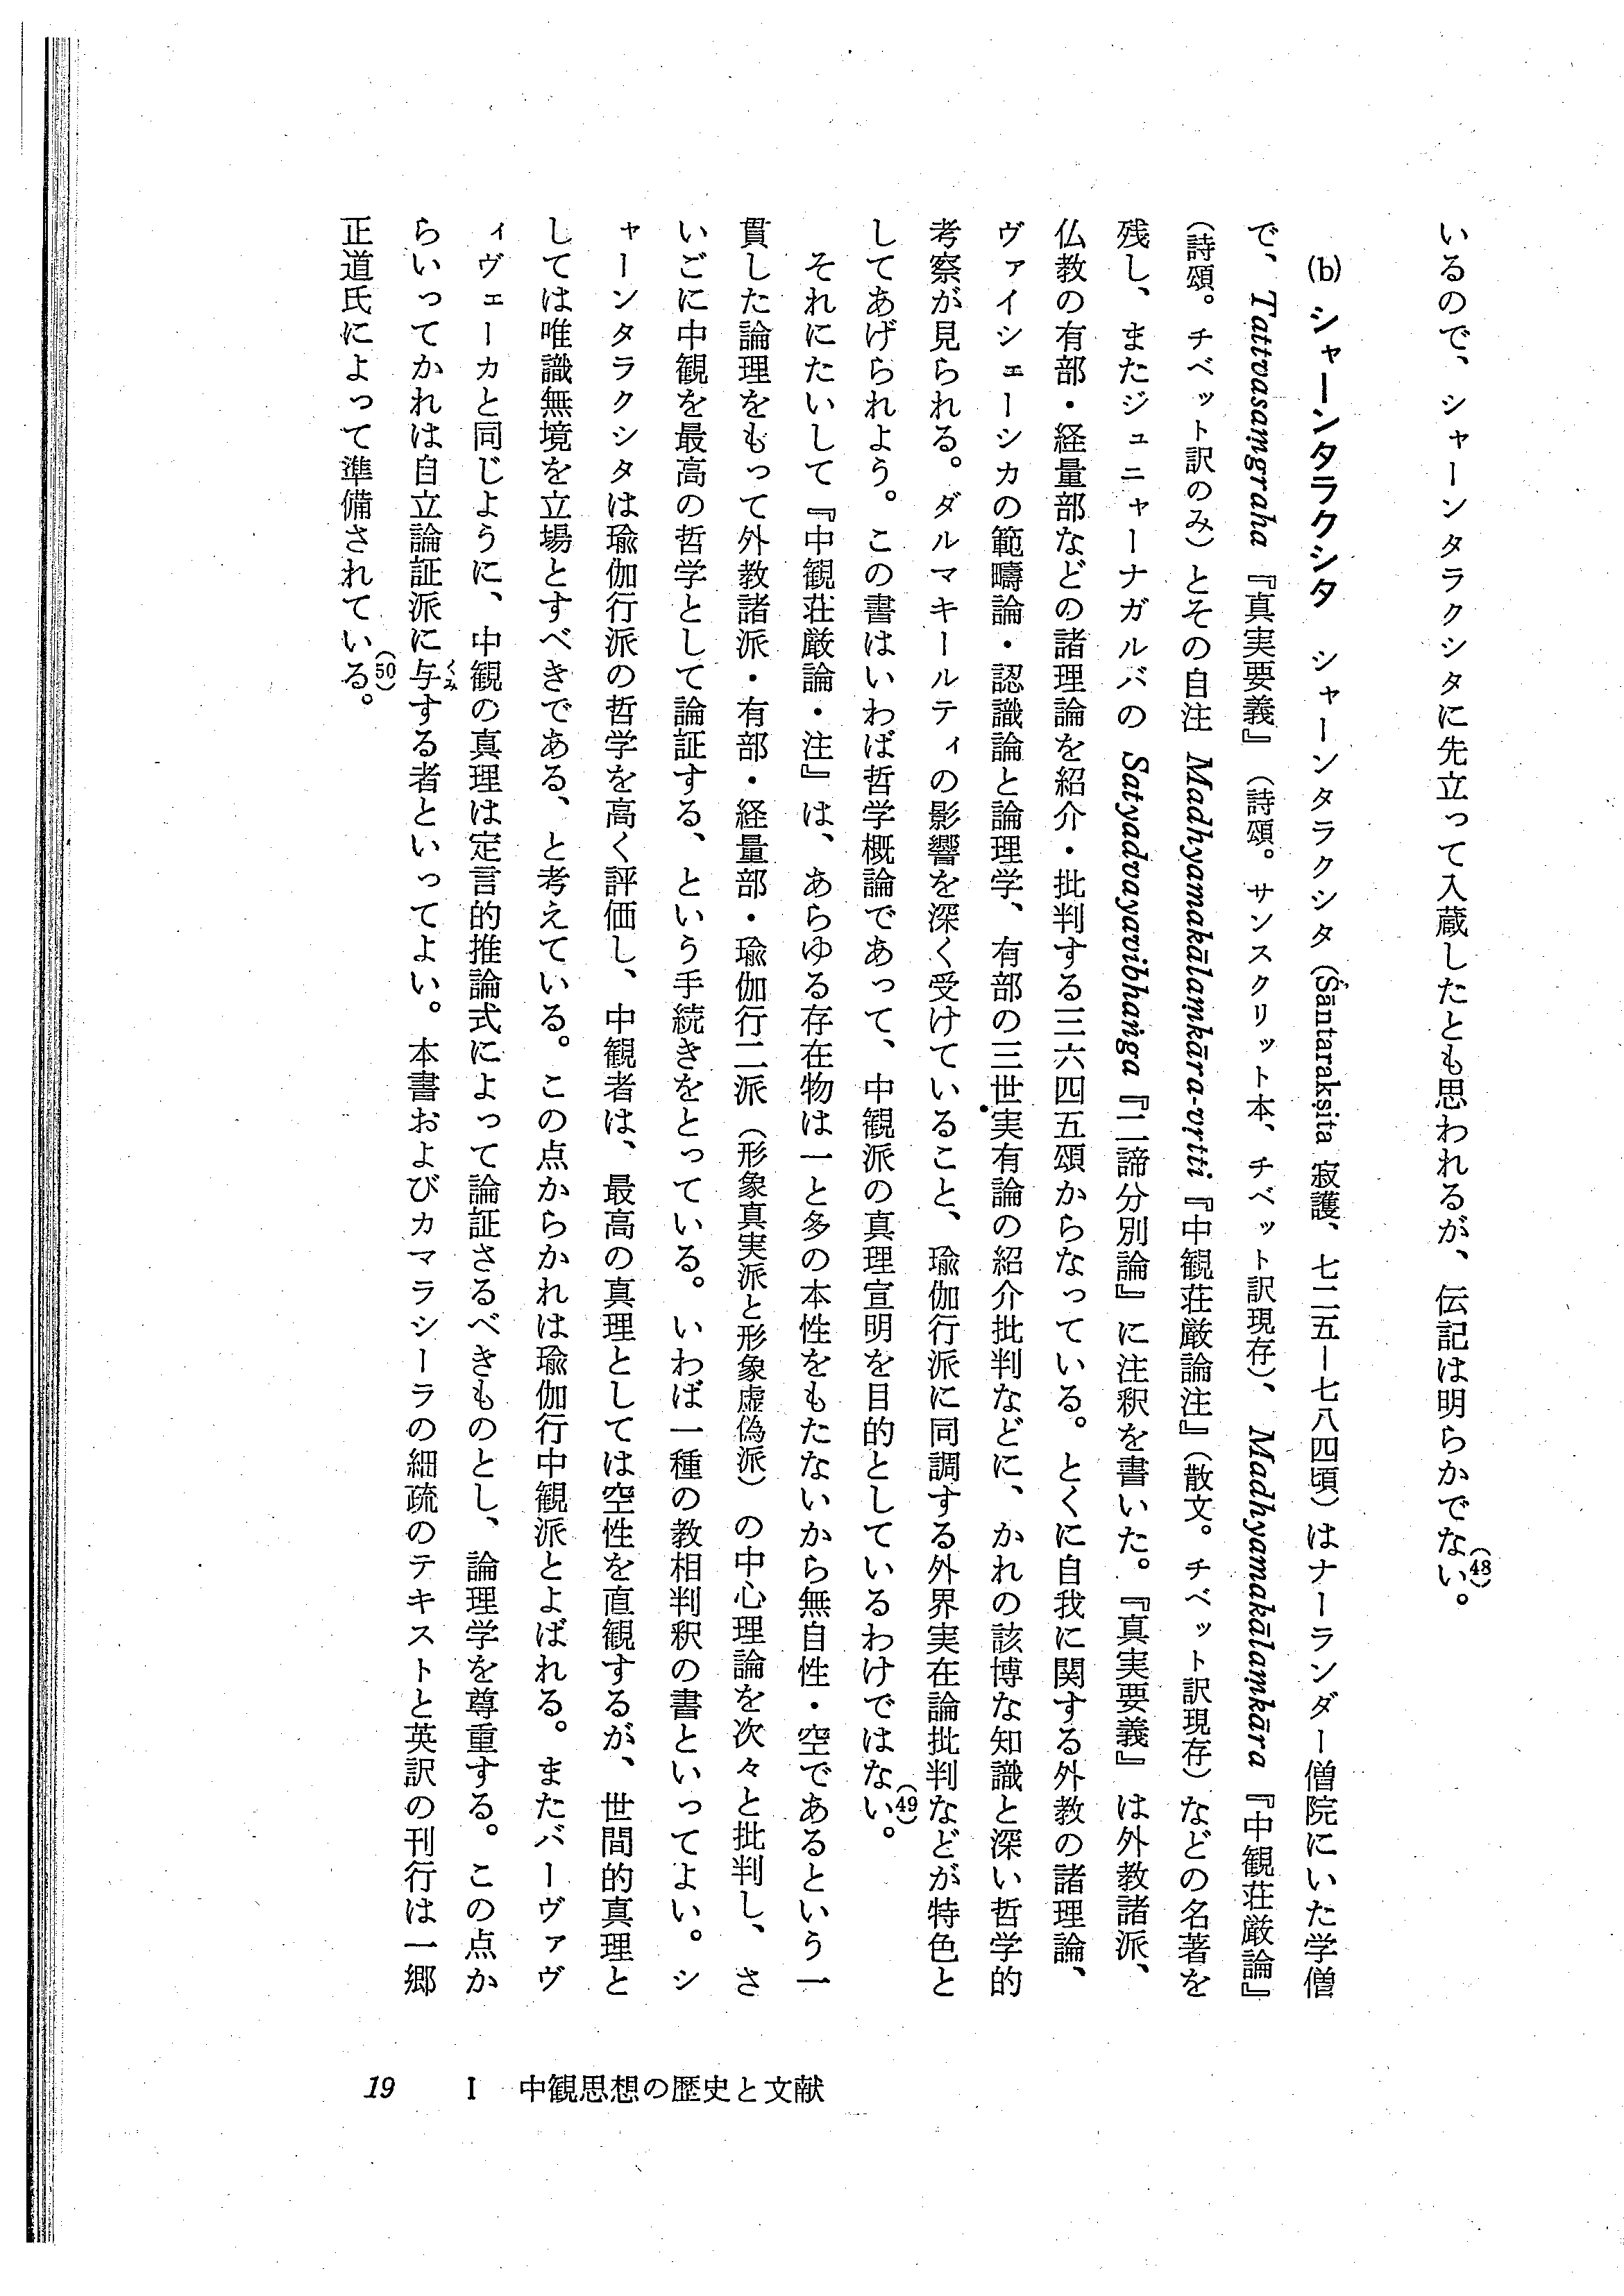 いるので、シャーンタラクシタに先立って入蔵したとも思われるが、伝記は明らかでない(48)。
(b) シャーンタラクシタ　シャーンタラクシタ（Śāntarakṣita 寂護、七二五―七八四頃）はナーランダー僧院にいた学僧
で、Tattvasaṃgraha『真実要義』（詩頌。サンスクリット本、チベット訳現存）、Madhyamakālaṃkāra『中観荘厳論』
（詩頌。チベット訳のみ）とその自注 Madhyamakālaṃkāra-vṛtti『中観荘厳論注』（散文。チベット訳現存）などの名著を
残し、またジュニャーナガルバの Satyadvayavibhaṅga『二諦分別論』に注釈を書いた。『真実要義』は外教諸派、
仏教の有部・経量部などの諸理論を紹介・批判する三六四五頌からなっている。とくに自我に関する外教の諸理論、
ヴァイシェーシカの範疇論・認識論と論理学、有部の三世実有論の紹介批判などに、かれの該博な知識と深い哲学的
考察が見られる。ダルマキールティの影響を深く受けていること、瑜伽行派に同調する外界実在論批判などが特色と
してあげられよう。この書はいわば哲学概論であって、中観派の真理宣明を目的としているわけではない(49)。
それにたいして『中観荘厳論・注』は、あらゆる存在物は一と多の本性をもたないから無自性・空であるという一
貫した論理をもって外教諸派・有部・経量部・瑜伽行二派（形象真実派と形象虚偽派）の中心理論を次々と批判し、さ
いごに中観を最高の哲学として論証する、という手続きをとっている。いわば一種の教相判釈の書といってよい。シ
ャーンタラクシタは瑜伽行派の哲学を高く評価し、中観者は、最高の真理としては空性を直観するが、世間的真理と
しては唯識無境を立場とすべきである、と考えている。この点からかれは瑜伽行中観派とよばれる。またバーヴァヴ
ィヴェーカと同じように、中観の真理は定言的推論式によって論証さるべきものとし、論理学を尊重する。この点か
らいってかれは自立論証派に与くみする者といってよい。本書およびカマラシーラの細疏のテキストと英訳の刊行は一郷
正道氏によって準備されている(50)。
19　I　中観思想の歴史と文献